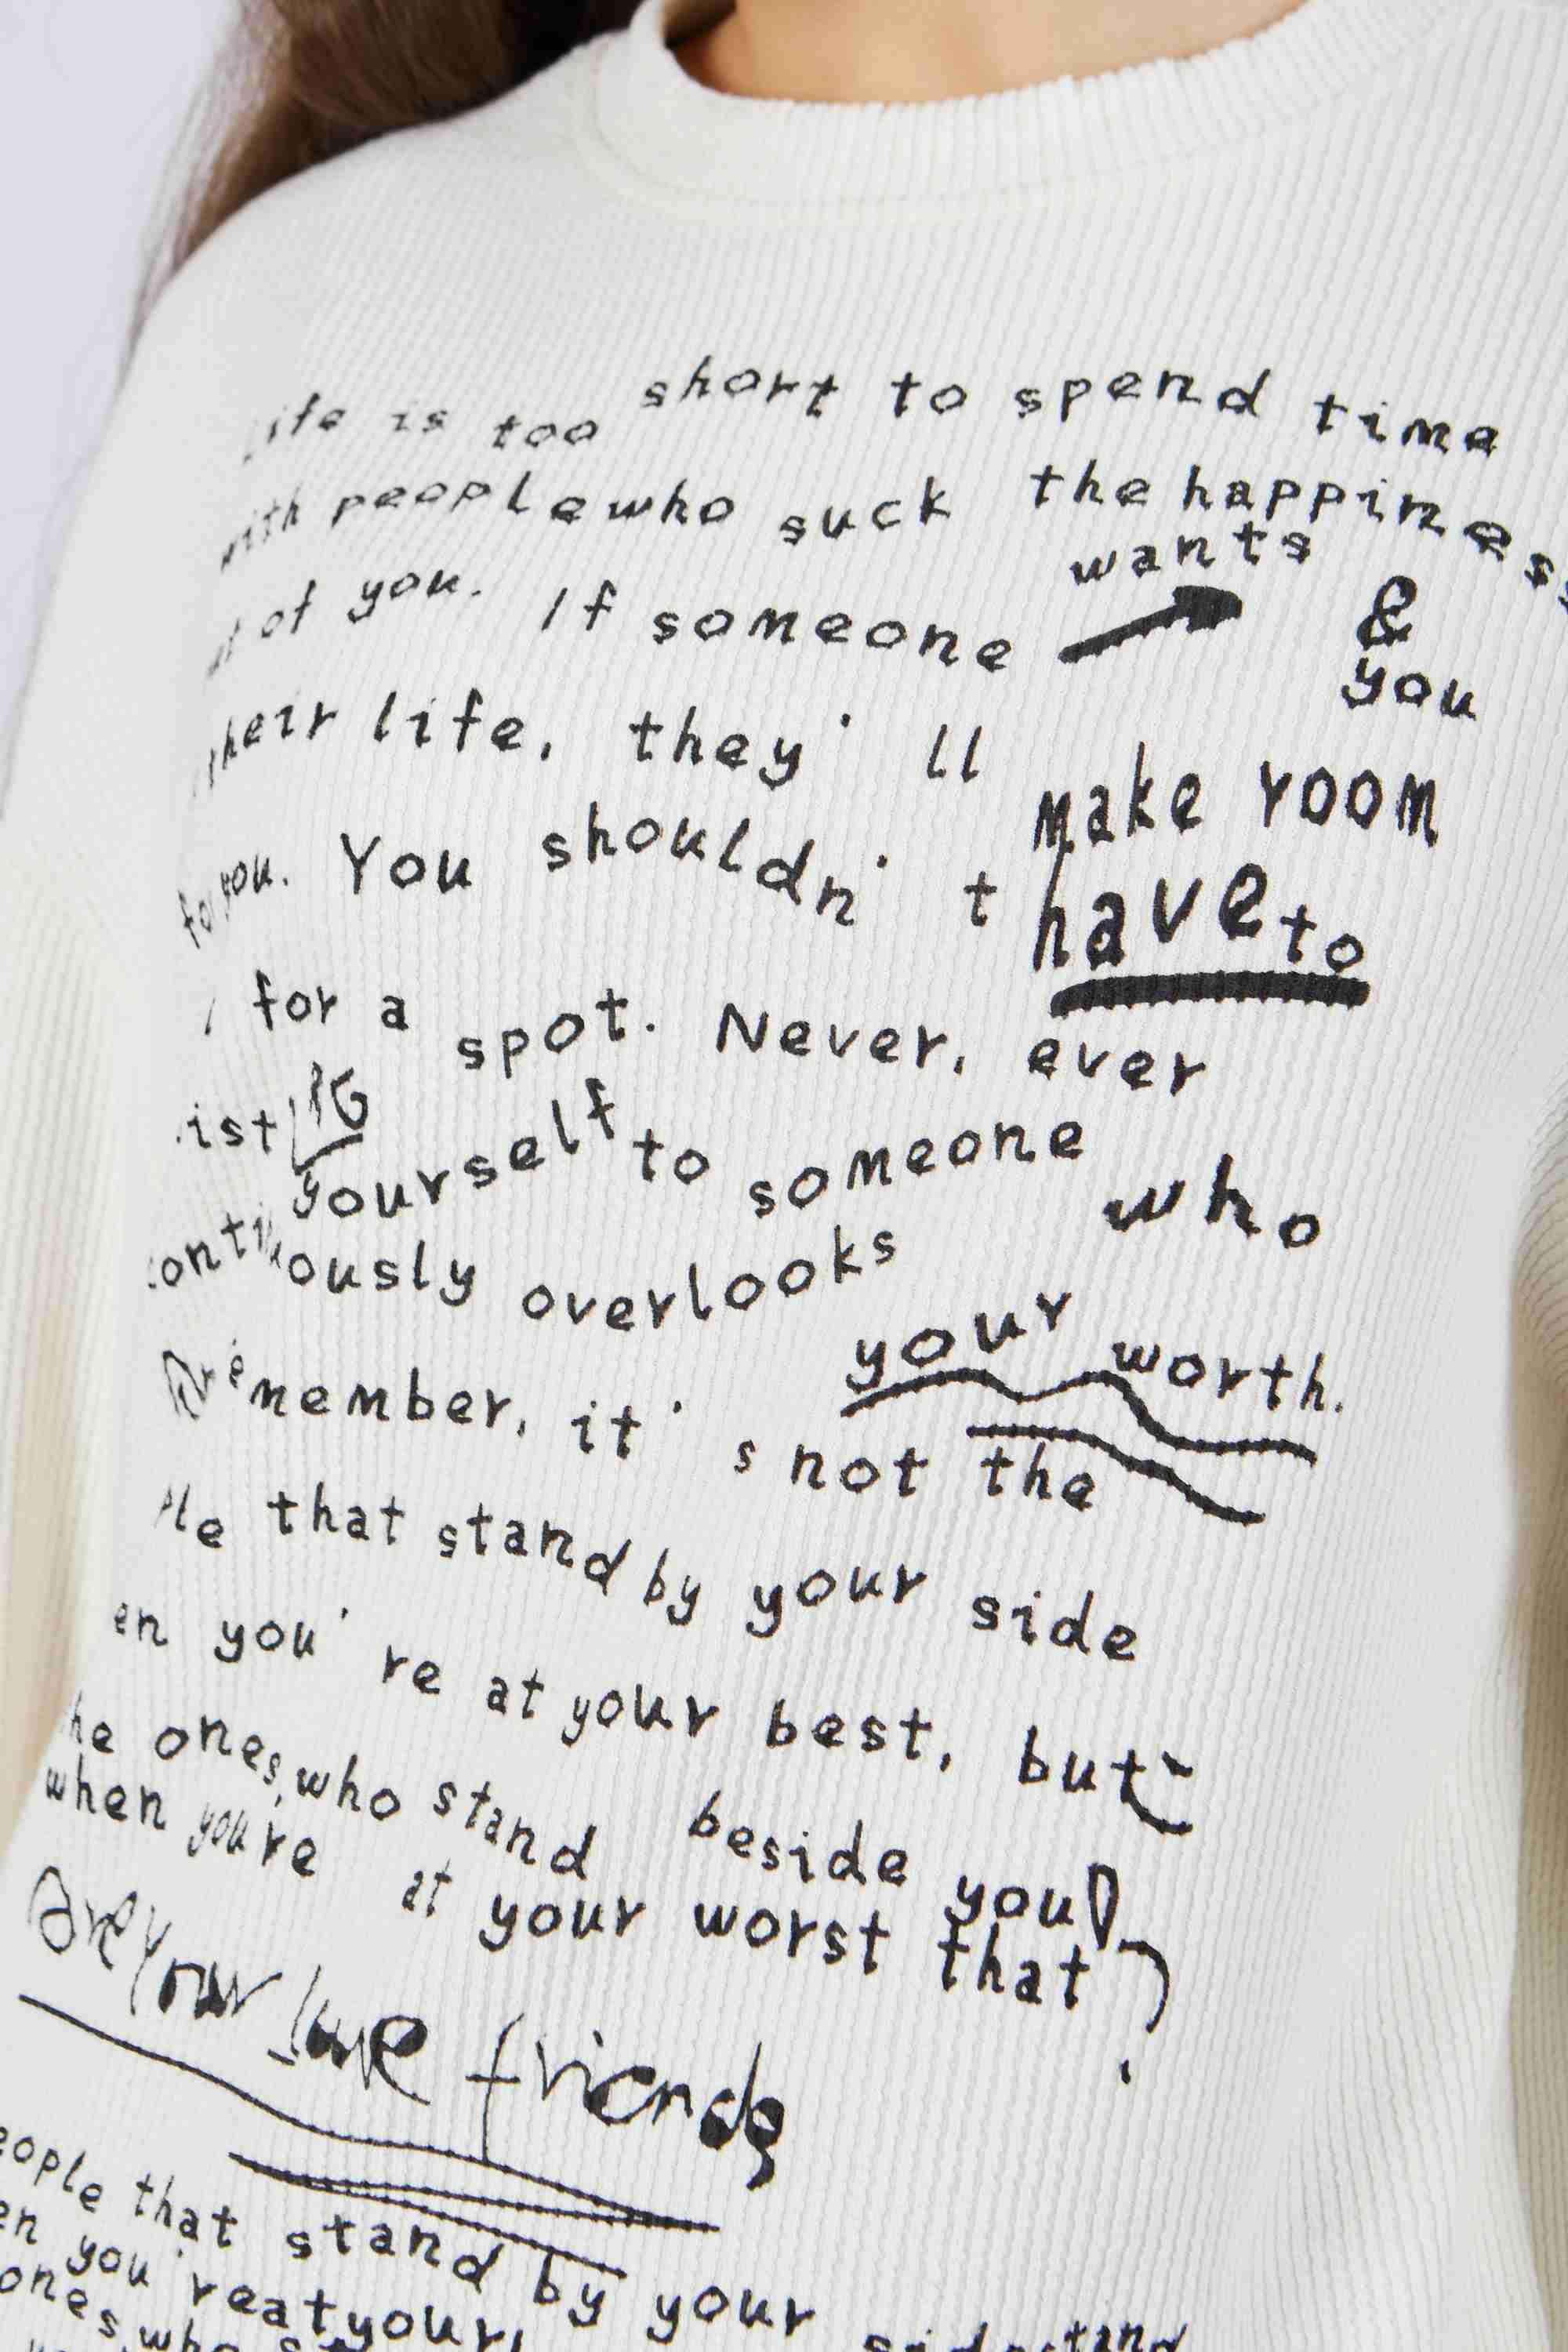 life is too short to spend time
with people who suck the happiness
of you. If someone wants & you
their life, they'll
make room
you. You shouldn't have to
for a spot. Never, ever
yourself to someone who
continuously overlooks
your worth.
Remember, it's not the
that stand by your side
en you're at your best, but
he ones, who stand beside you
when you're at your worst that
are your friends
eople that stand by your
en you're at your
ones, who